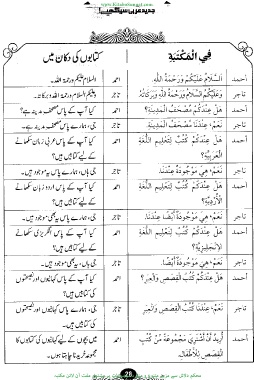 www.KitaboSunnat.com
فِي الْمَكْتَبَةِ
کتابوں کی دکان میں
أحمد اَلسَّلَامُ عَلَيْكُمْ وَرَحْمَةُ اللّٰهِ احمد السلام علیکم ورحمۃ اللہ۔
تاجر وَعَلَيْكُمُ السَّلَامُ وَرَحْمَةُ اللّٰهِ وَبَرَكَاتُهُ تاجر وعلیکم السلام ورحمۃ اللہ وبرکاتہ۔
أحمد هَلْ عِنْدَكُمْ مُصْحَفُ الْمَدِيْنَةِ؟ احمد کیا آپ کے پاس مصحف مدینہ ہے؟
تاجر نَعَمْ، عِنْدَنَا مُصْحَفُ الْمَدِيْنَةِ تاجر جی، ہمارے پاس مصحف مدینہ ہے۔
أحمد هَلْ عِنْدَكُمْ كُتُبٌ لِتَعْلِيْمِ اللُّغَةِ احمد کیا آپ کے پاس عربی زبان سکھانے
الْعَرَبِيَّةِ؟ کے لیے کتابیں ہیں؟
تاجر نَعَمْ، هِيَ مَوْجُوْدَةٌ عِنْدَنَا. تاجر جی، ہمارے پاس یہ موجود ہیں۔
أحمد هَلْ عِنْدَكُمْ كُتُبٌ لِتَعْلِيْمِ اللُّغَةِ احمد کیا آپ کے پاس اردو زبان سکھانے
الْأُرْدِيَّةِ؟ کے لیے کتابیں ہیں؟
تاجر نَعَمْ، هِيَ مَوْجُوْدَةٌ أَيْضًا عِنْدَنَا. تاجر جی، ہمارے پاس یہ بھی موجود ہیں۔
أحمد هَلْ عِنْدَكُمْ كُتُبٌ لِتَعْلِيْمِ اللُّغَةِ احمد کیا آپ کے پاس انگریزی سکھانے
الْإِنْجِلِيْزِيَّةِ؟ کے لیے کتابیں ہیں؟
تاجر نَعَمْ، هِيَ مَوْجُوْدَةٌ أَيْضًا. تاجر جی ہاں، یہ بھی موجود ہیں۔
أحمد هَلْ عِنْدَكُمْ كُتُبُ الْقِصَصِ وَالْعِبَرِ؟ احمد کیا آپ کے پاس کہانیوں اور نصیحتوں
کی کتابیں ہیں؟
تاجر نَعَمْ، عِنْدَنَا كُتُبُ الْقِصَصِ وَالْعِبَرِ تاجر جی، ہمارے پاس کہانیوں اور نصیحتوں
کی کتابیں ہیں۔
أحمد أُرِيْدُ أَنْ أَشْتَرِيَ مَجْمُوْعَةً مِنْ كُتُبِ احمد میں بچوں کے لیے کہانیوں کی کتابوں کا
الْقِصَصِ لِلْأَطْفَالِ. مجموعہ خریدنا چاہتا ہوں۔
28